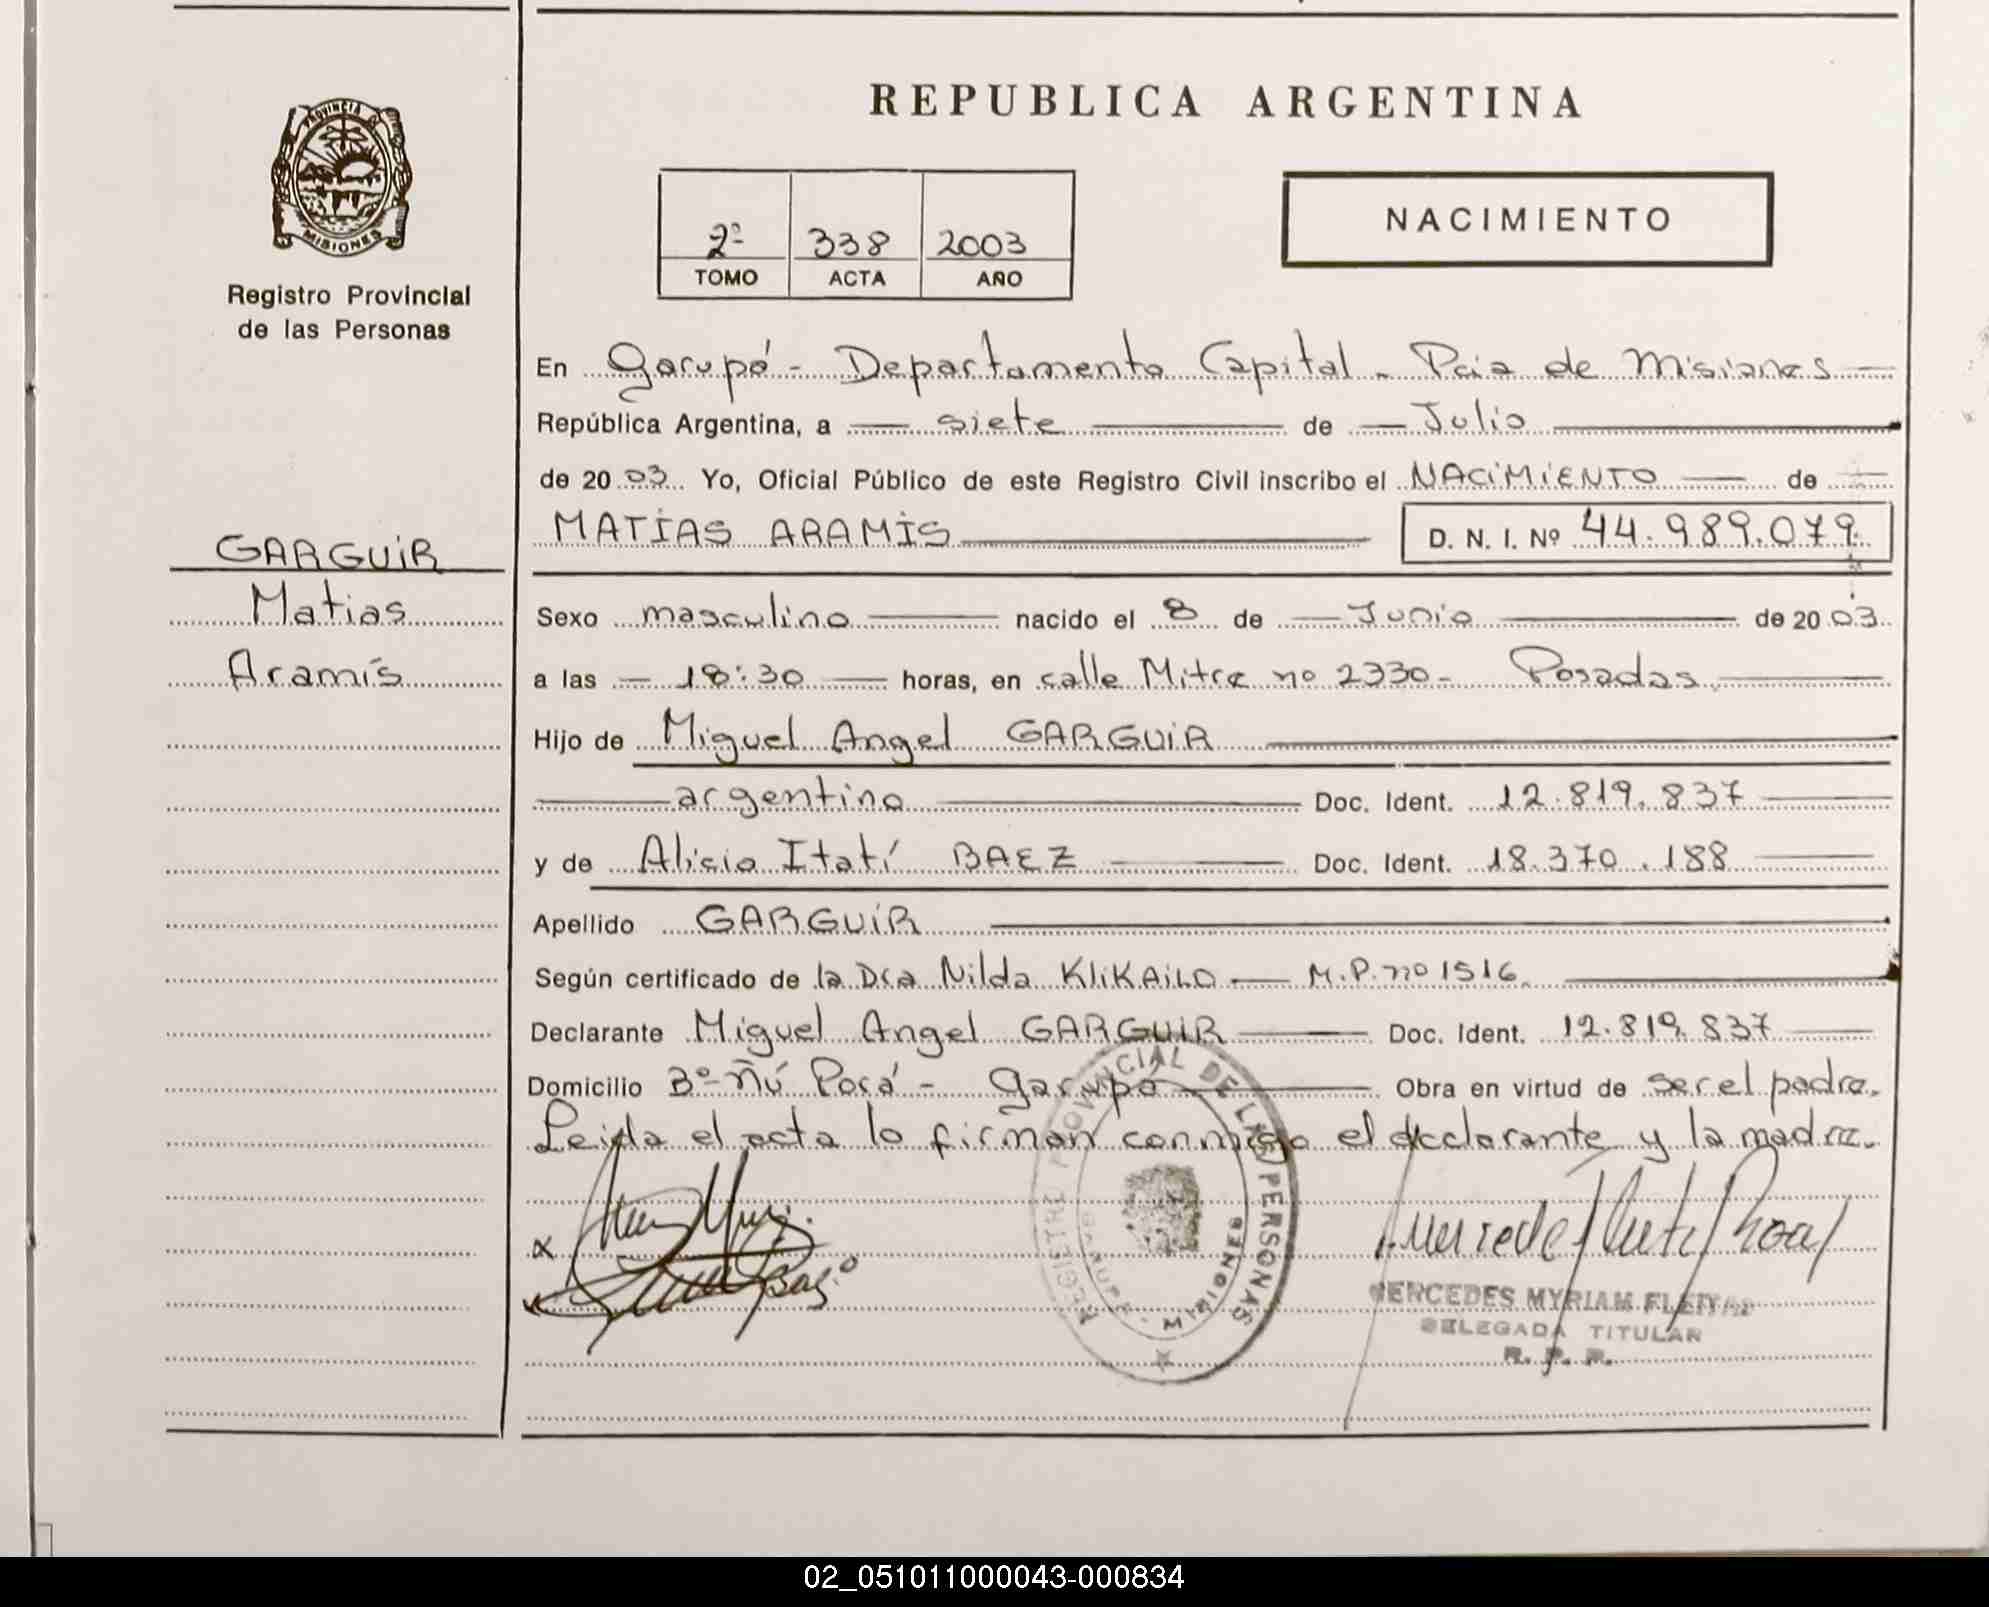 REPUBLICA ARGENTINA
PROVINCIA D
MISIONES
Registro Provincial
de las Personas
2º 338 2003
TOMO ACTA AÑO
NACIMIENTO
En Garupá - Departamento Capital - Pcia de Misiones
República Argentina, a siete de Julio
de 2003 Yo, Oficial Público de este Registro Civil inscribo el NACIMIENTO de
MATÍAS ARAMÍS D. N. I. Nº 44.989.079
GARGUIR
Matías
Aramís
Sexo masculino nacido el 8 de Junio de 2003
a las 18:30 horas, en calle Mitre nº 2330 - Posadas
Hijo de Miguel Angel GARGUIR
argentino Doc. Ident. 12.819.837
y de Alicia Itatí BAEZ Doc. Ident. 18.370.188
Apellido GARGUIR
Según certificado de la Dra Nilda KLIKAILO M.P. nº 1516
Declarante Miguel Angel GARGUIR Doc. Ident. 12.819.837
Domicilio Bº Ñú Porá - Garupá Obra en virtud de ser el padre.
Leída el acta lo firman conmigo el declarante y la madre.
REGISTRO PROVINCIAL DE LAS PERSONAS
MISIONES
MERCEDES MYRIAM FLEITAS
DELEGADA TITULAR
R. P. P.
02_051011000043-000834